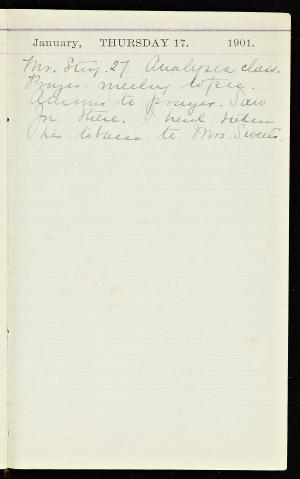 January, THURSDAY 17. 1901.
Mr. 27 Analysis class.
Prayer-meeting topic.
Answers to prayer. Saw
Jn there. I had taken
his tobacco to Mrs. Sweets.